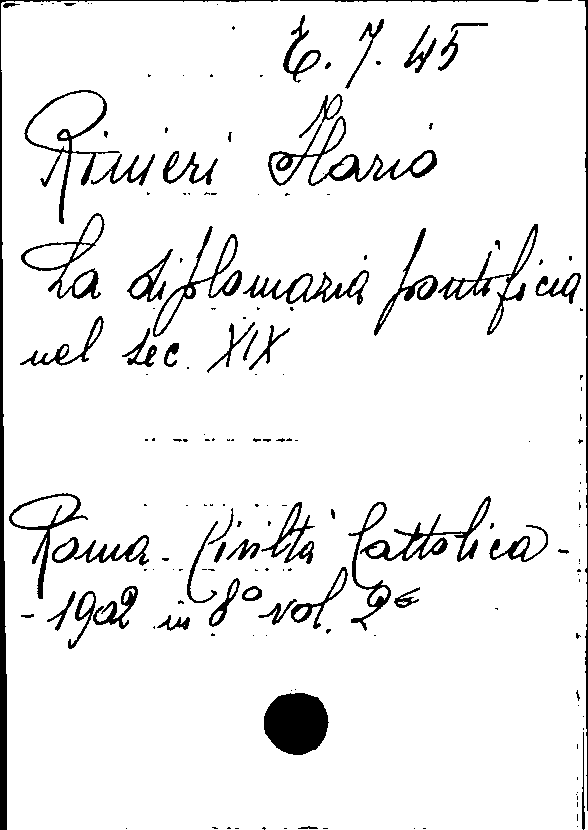 E. 7. 45
Rinieri Ilario
La diplomazia pontificia
nel sec. XIX
Roma - Civiltà Cattolica -
- 1902 in 8° vol. 2